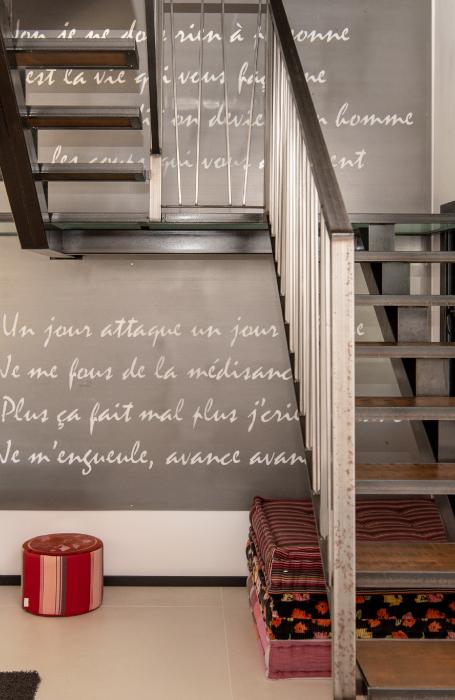 Non je ne dois rien à onne
est la vie qui vous faç ne
on devie homme
les coups qui vous ent
Un jour attaque un jour e
Je me fous de la médisanc
Plus ça fait mal plus j'cri
Je m'engueule, avance avan